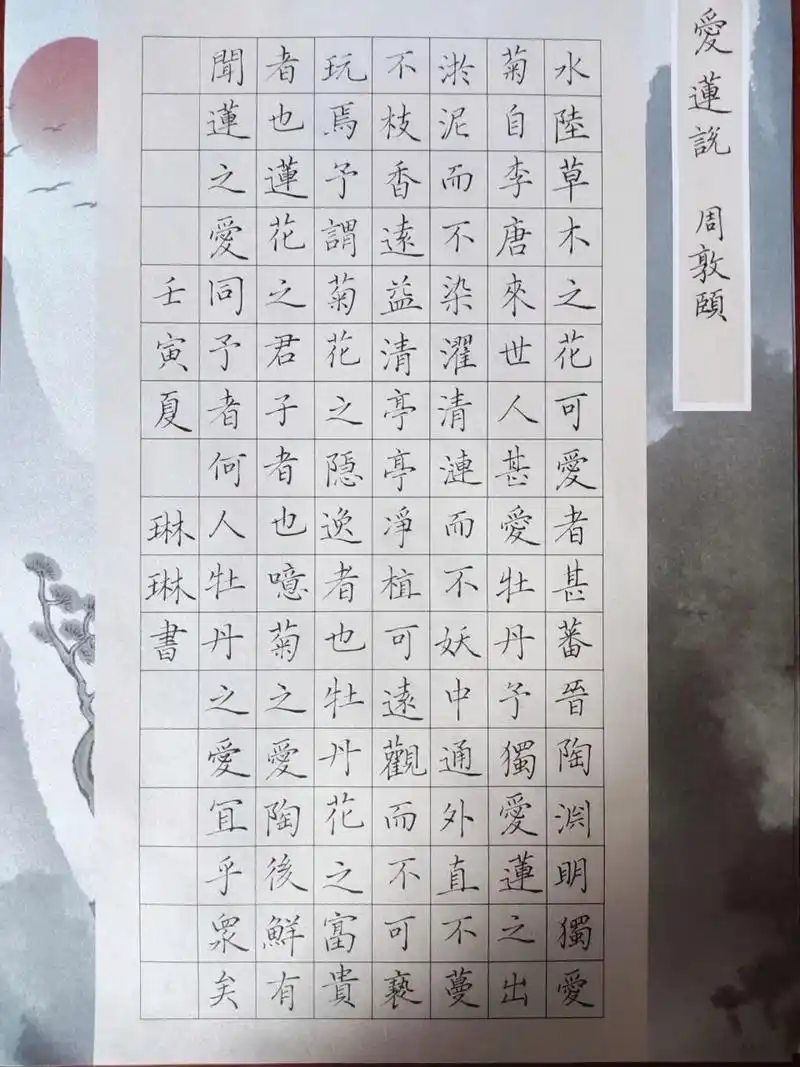 愛蓮說 周敦頤
水陸草木之花可愛者甚蕃晉陶淵明獨愛
菊自李唐來世人甚愛牡丹予獨愛蓮之出
淤泥而不染濯清漣而不妖中通外直不蔓
不枝香遠益清亭亭凈植可遠觀而不可褻
玩焉予謂菊花之隱逸者也牡丹花之富貴
者也蓮花之君子者也噫菊之愛陶後鮮有
聞蓮之愛同予者何人牡丹之愛宜乎眾矣
壬寅夏 琳琳書